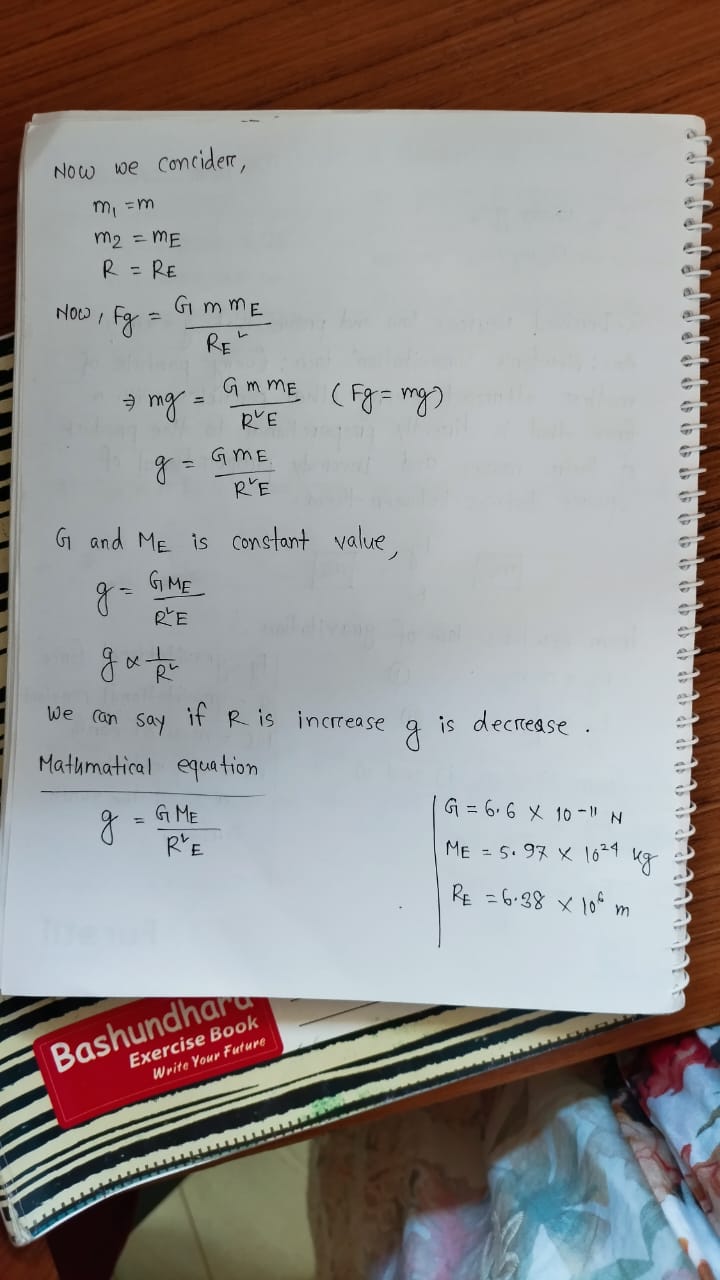 Now we conciderr,
m₁ = m
m₂ = mE
R = RE
Now, Fg = G m mE / RE²
⇒ mg = G m mE / R²E (Fg = mg)
g = G mE / R²E
G and ME is constant value,
g = G ME / R²E
g ∝ 1 / R²
We can say if R is increase g is decrease .
Mathmatical equation
g = G ME / R²E
G = 6.6 X 10⁻¹¹ N
ME = 5.97 X 10²⁴ kg
RE = 6.38 X 10⁶ m
Bashundhara
Exercise Book
Write Your Future